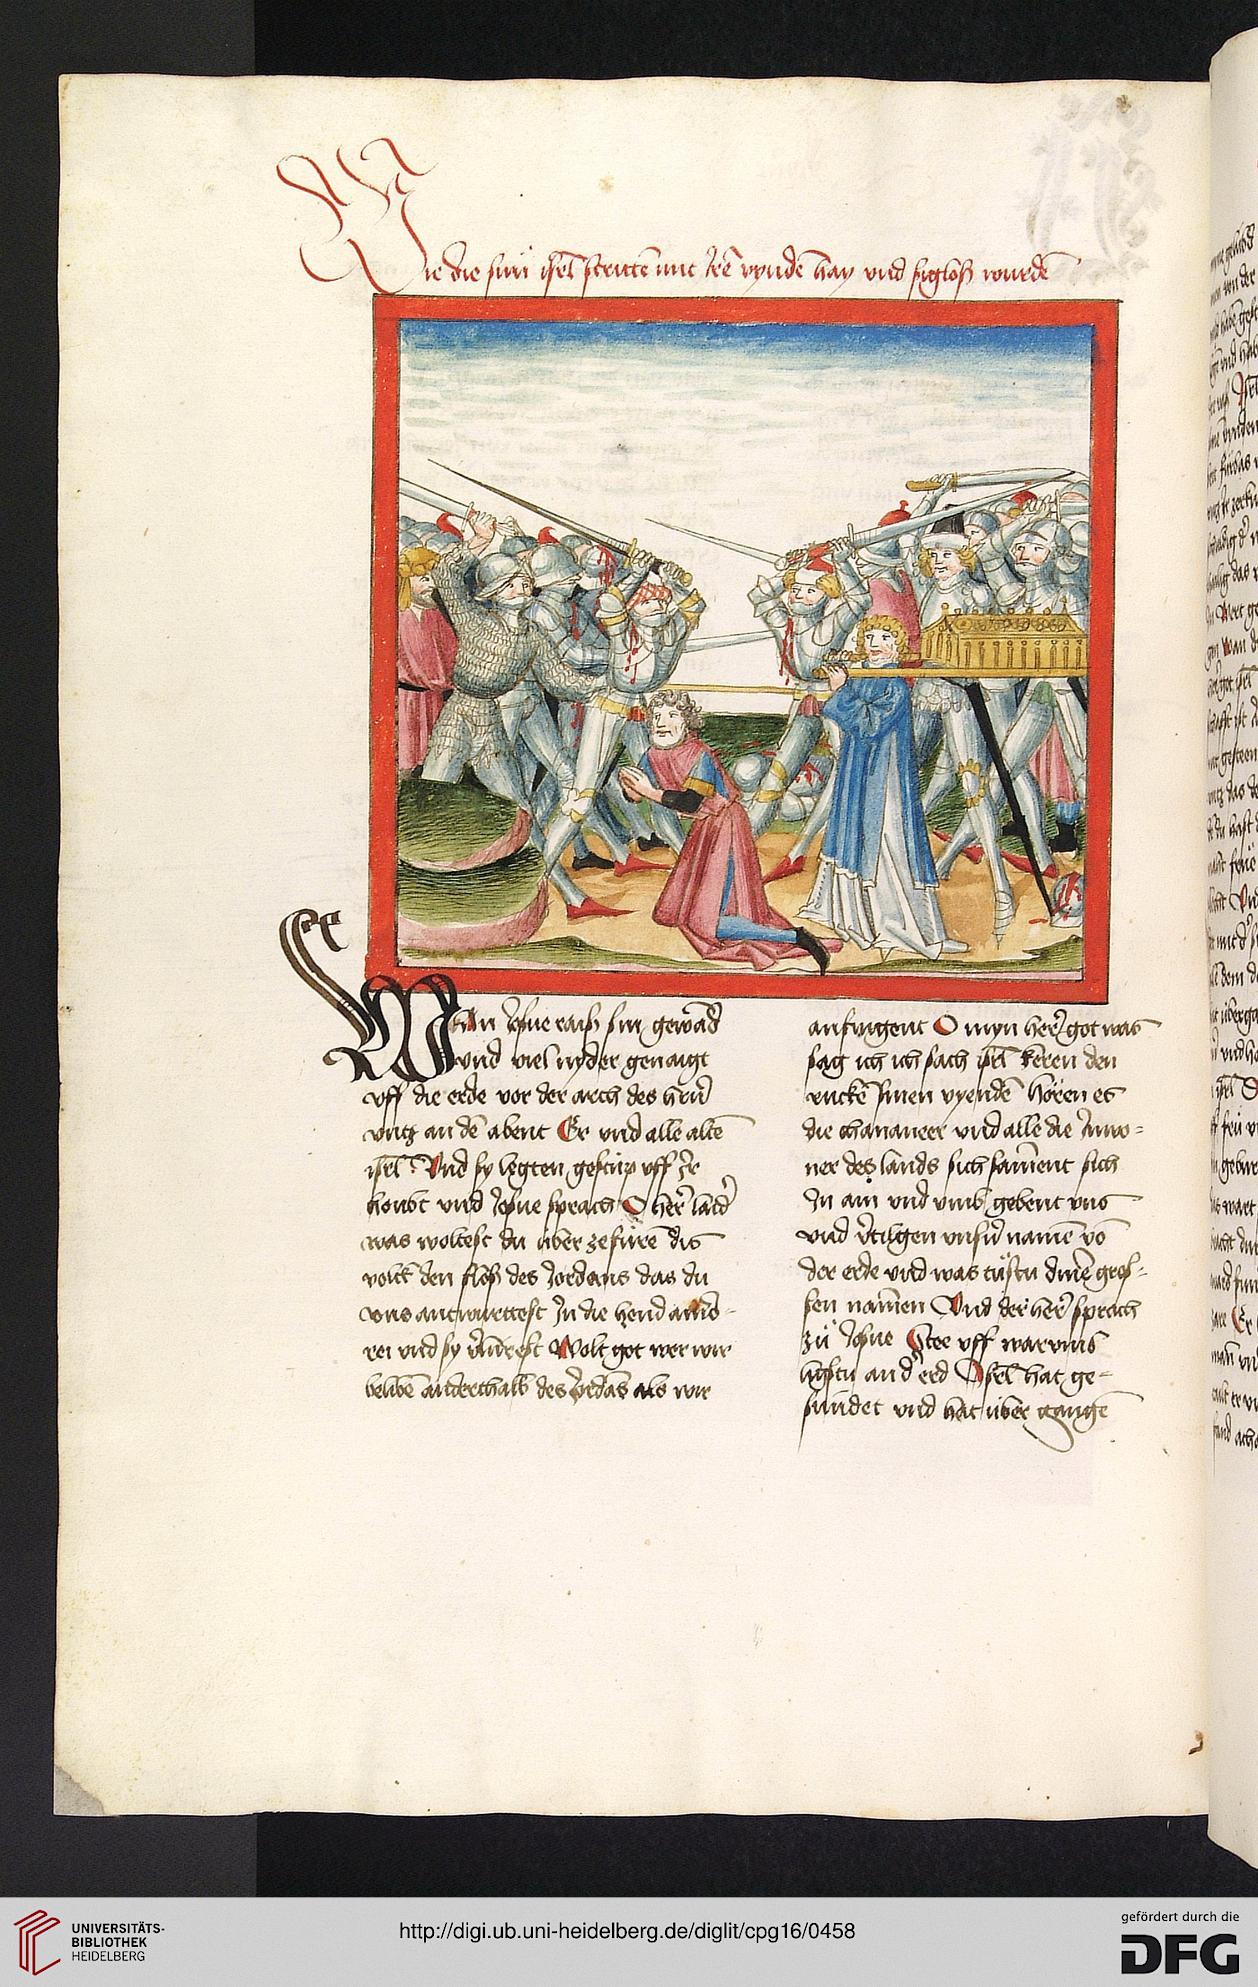 Wie die sun isrl̄ stritte͂ mit Jre͂ vynde͂ hay vnd sigloß wurde͂
Wan Josue raiß sin gewa͂d
vnd viel nyder genaigt
vff die erde vor der arch des hrn̄
vntz an de͂ abent Er vnd alle alte͂
isrl̄ Vnd sy legten gestup vff Jr
houbt vnd Josue sprach O herr
was woltest du über ze füre͂ dis
volck den floß des Jordans das du
vns antwurttest Jn die hend amo-
rei vnd Wolt got wer wir
belibe͂ anderthalb des Jorda͂s als wir
anfingent O myn herr got was
sag ich ich sach isrl̄ keren den
rucke͂ sinen vyende͂ Hören es
die chananeer vnd alle die Jnwo-
ner des lands sich sament sich
Jn ain vnd vmb gebent vns
vnd v̄tilgen vnsn̄ name͂ vo͂
der erde vnd was tüstu dine͂ gros-
sen namen Vnd der herr sprach
zü Josue Stee vff warumb
ligstu an d̄ erd Isrl̄ hat ge-
sündet vnd hat über gange͂
UNIVERSITÄTS-
BIBLIOTHEK
HEIDELBERG
http://digi.ub.uni-heidelberg.de/diglit/cpg16/0458
gefördert durch die
DFG